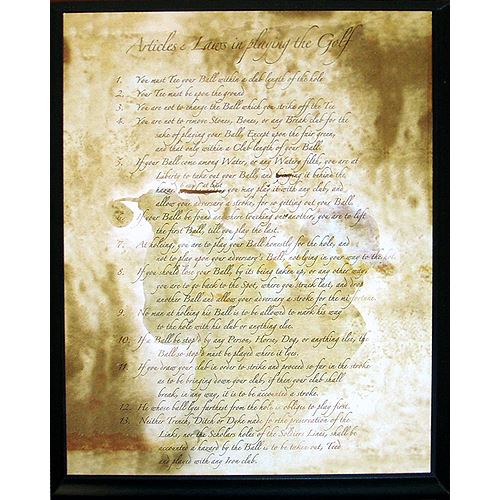 Articles & Laws in playing the Golf
1. You must Tee your Ball within a club length of the hole
2. Your Tee must be upon the ground
3. You are not to change the Ball which you strike off the Tee
4. You are not to remove Stones, Bones, or any Break club for the
sake of playing your Ball, Except upon the fair green,
and that only within a Club length of your Ball.
5. If your Ball come among Water, or any Watery filth, you are at
Liberty to take out your Ball, and it behind the
you may play it with any club, and
allow your adversary a stroke, for so getting out your Ball.
6. If your Balls be found anywhere touching one another, you are to lift
the first Ball, till you play the last.
7. At holeing, you are to play your Ball honestly for the hole, and
not to play upon your adversary's Ball, not lying in your way to the hole.
8. If you should lose your Ball, by its being taken up, or any other way,
you are to go back to the Spot, where you struck last, and drop
another Ball and allow your adversary a stroke for the misfortune.
9. No man at holeing his Ball is to be allowed, to mark his way
to the hole with his club or anything else.
10. If a Ball be stop'd by any Person, Horse, Dog, or anything else, the
Ball so stop'd must be played where it lyes.
11. If you draw your club in order to strike and proceed so far in the stroke
as to be bringing down your club, if then your club shall
break, in any way, it is to be accounted a stroke.
12. He whose ball lyes farthest from the hole is obliged to play first.
13. Neither Trench, Ditch or Dyke made for the preservation of the
Links, nor the Scholars holes or the Soldiers Lines, shall be
accounted a hazard by the Ball is to be taken out, Teed
and played with any Iron club.